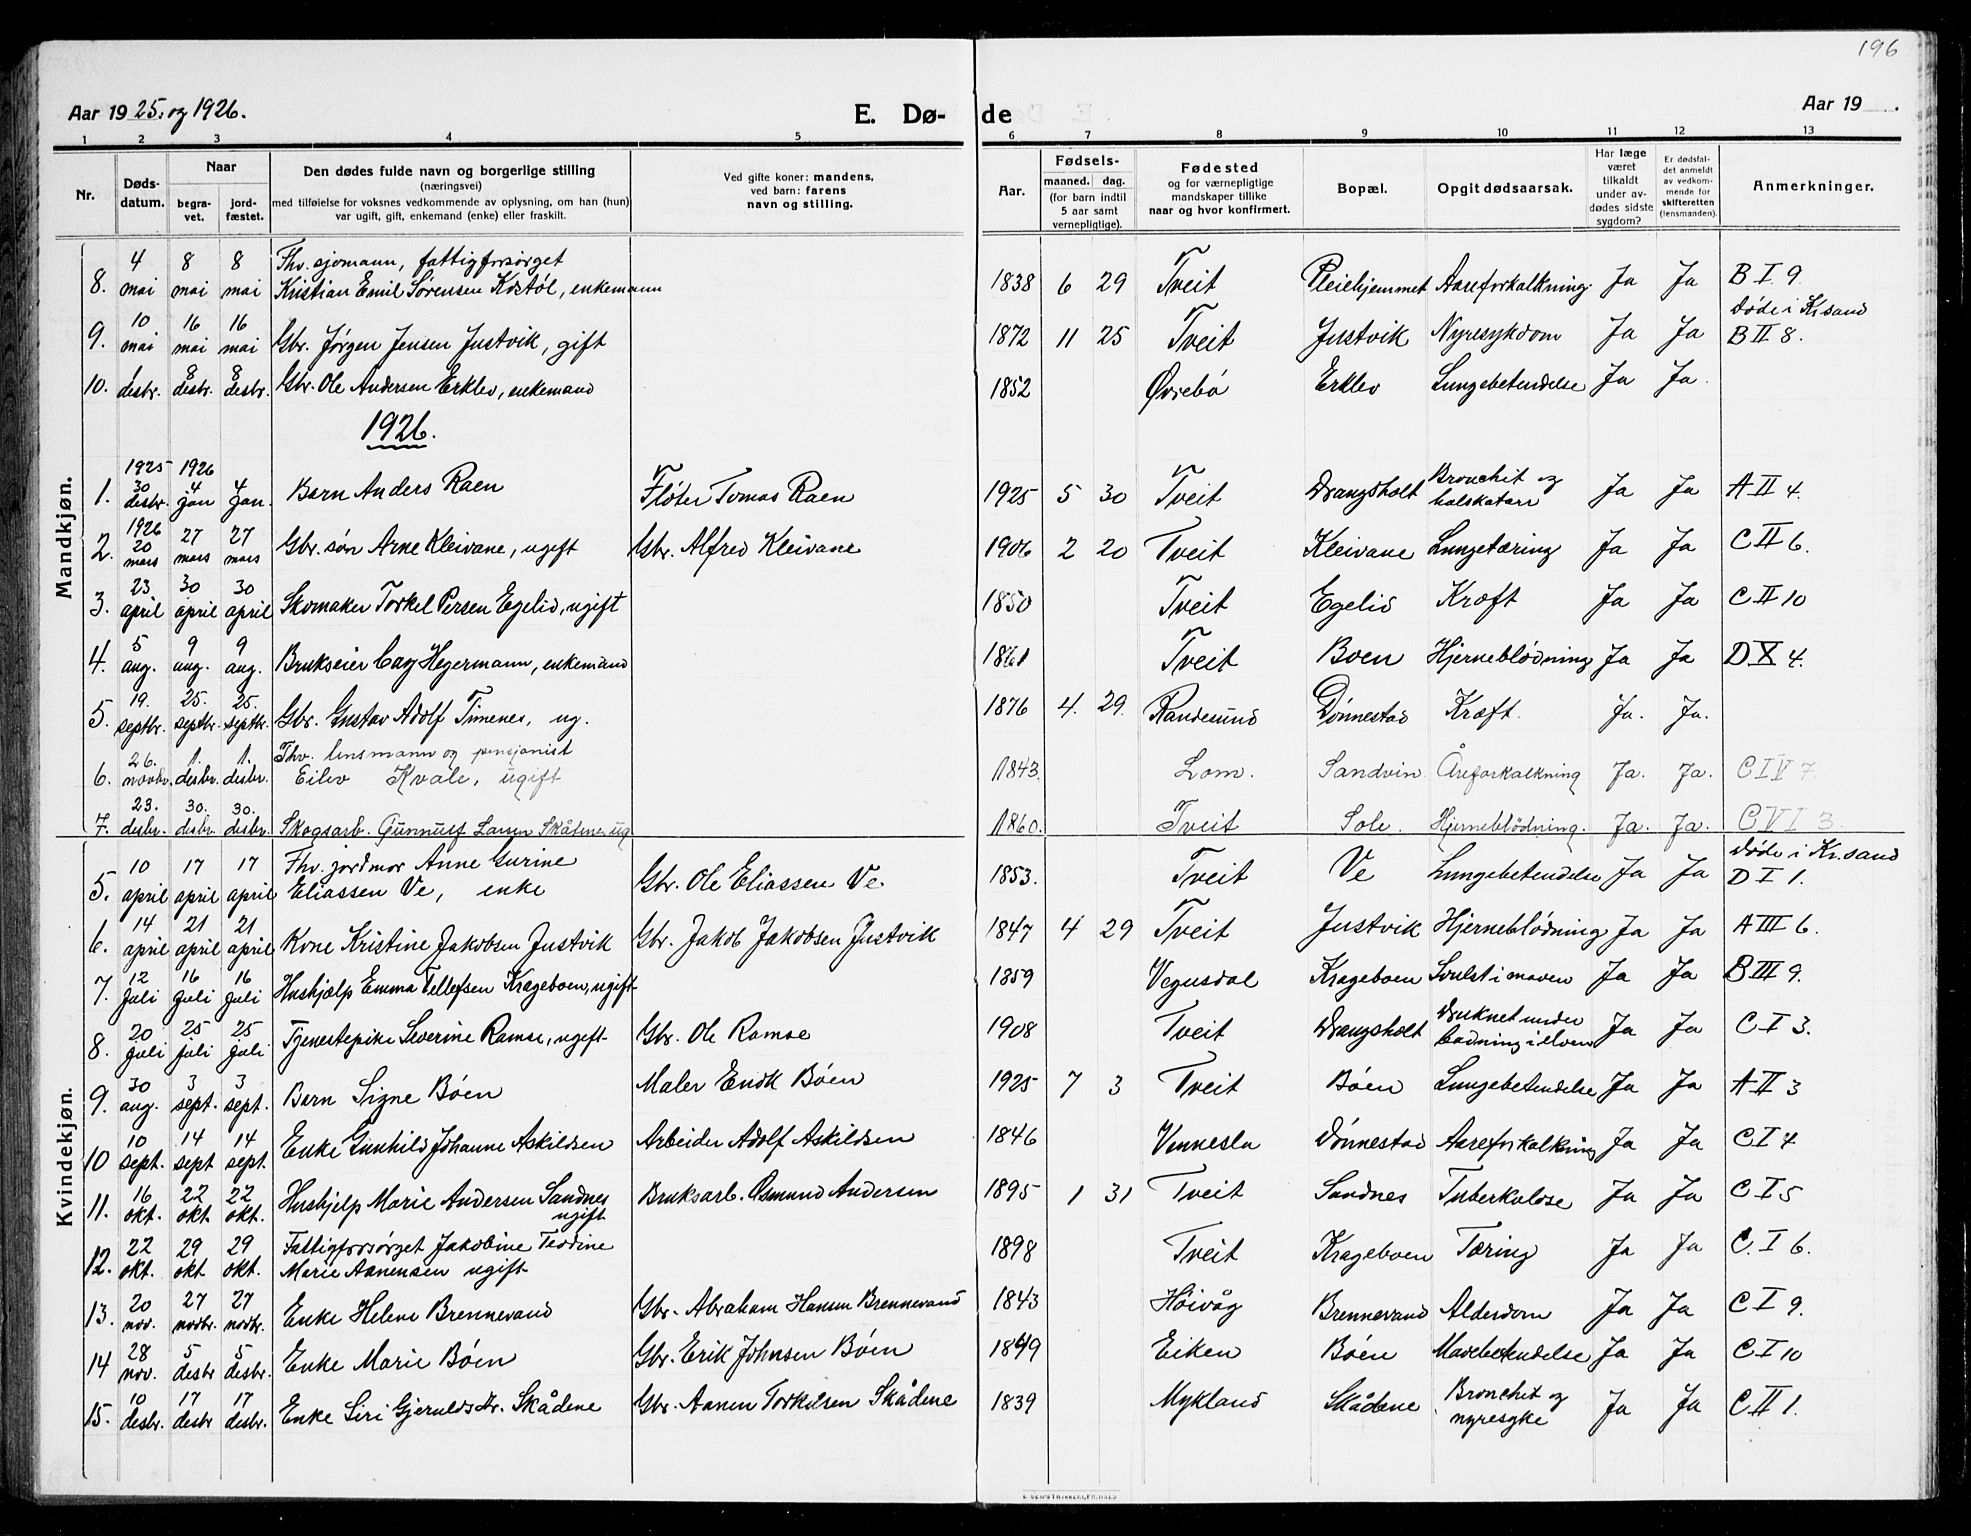 196
Aar 1925. og 1926. E. Dø- de Aar 19 .
1 2 3 4 5 6 7 8 9 10 11 12 13
Nr. Døds-datum. Naar begra-vet. jord-fæstet. Den dødes fulde navn og borgerlige stilling (næringsvei) med tilføielse for voksnes vedkommende av oplysning, om han (hun) var ugift, gift, enkemand (enke) eller fraskilt. Ved gifte koner: mandens, ved barn: farens navn og stilling. Aar. Fødsels- maaned. dag. (for barn indtil 5 aar samt vernepligtige). Fødested og for værnepligtige mandskaper tillike naar og hvor konfirmert. Bopæl. Opgit dødsaarsak. Har læge været tilkaldt under av-dødes sidste sygdom? Er dødsfal-det anmeldt av vedkom-mende for skifteretten (lensmanden). Anmerkninger.
Mandkjøn.
8. 4 mai 8 mai 8 mai Fhv. sjomann, fattigforsørget Kristian Emil Sørensen Kostøl, enkemann 1838 6 29 Tveit Pleiehjemmet Aareforkalkning. Ja Ja B I 9
9. 10 mai 16 mai 16 mai Gbr. Jørgen Jensen Justvik, gift 1872 11 25 Tveit Justvik Nyresykdom Ja Ja døde i Kr.sand B II 8.
10. 1 desbr. 8 desbr. 8 desbr. Gbr. Ole Andersen Erklev, enkemand 1852 Øvrebø Erklev Lungebetendelse Ja Ja.
1926.
1. 1925 30 desbr. 1926 4 jan 4 jan. Barn Anders Raen Fløter Tomas Raen 1925 5 30 Tveit Drangsholt Bronchit og halskatarr Ja Ja A II 4.
2. 1926 20 mars 27 mars 27 mars Gbr. søn Arne Kleivane, ugift Gbr. Alfred Kleivane 1906 2 20 Tveit Kleivane Lungetæring Ja Ja C II 6.
3. 23 april 30 april 30 april Skomaker Torkel Persen Egelid, ugift 1850 Tveit Egelid Kræft Ja Ja C II 10
4. 5 aug. 9 aug. 9 aug. Brukseier Cay Hegermann, enkemand 1861 Tveit Boen Hjerneblødning Ja Ja D X 4.
5. 19. septbr. 25. septbr. 25. septbr. Gbr. Gustav Adolf Timenes, ug. 1876 4. 29. Randesund Dønnestad Kræft. Ja. Ja.
6. 26. novbr. 1. desbr. 1. desbr. Fhv. lensmann og pensjonist Eilev Kvale, ugift 1843. Lom. Sandvin Åreforkalkning Ja. Ja. C IV 7.
7. 23. desbr. 30. desbr. 30. desbr. Skogsarb. Gunnulf Larsen Skådene, ug 1860. Tveit Sole. Hjerneblødning. Ja. Ja. C VI 3
Kvindekjøn.
5. 10 april 17 april 17 april Fhv. jordmor Anne Gurine Eliassen Ve, enke Gbr. Ole Eliassen Ve 1853. Tveit Ve Lungebetendelse Ja Ja døde i Kr.sand D I 1.
6. 14 april 21 april 21 april Kone Kristine Jakobsen Justvik Gbr. Jakob Jakobsen Justvik 1847 4 29 Tveit Justvik Hjerneblødning Ja Ja A III 6.
7. 12 Juli 16 Juli 16 Juli Hushjælp Emma Tellefsen Krageboen, ugift 1859 Vegusdal Krageboen Svulst i maven Ja Ja B III 9.
8. 20 Juli 25 Juli 25 Juli Tjenestepike Severine Ramse, ugift Gbr. Ole Ramse 1908 Tveit Drangsholt Druknet under badning i elven Ja Ja C I 3.
9. 30 aug. 3 sept. 3 sept. Barn Signe Bóen Maler Endk Bóen 1925 7 3 Tveit Bóen Lungebetendelse Ja Ja A II 3
10 10 sept. 14 sept 14 sept. Enke Gunhild Johanne Askildsen Arbeider Adolf Askildsen 1846 Vennesla Dønnestad Aareforkalkning Ja Ja C I 4
11. 16 okt. 22 okt 22 okt. Hushjelp Marie Andersen Sandnes ugift Bruksarb. Osmund Andersen 1895 1 31 Tveit Sandnes Tuberkulose Ja Ja C I 5
12. 22 okt. 29 okt 29 okt. Fattigforsørget Jakobine Teodine Marie Aanensen ugift 1898 Tveit Krageboen Tæring Ja Ja C. I 6.
13. 20 nov. 27 novbr. 27 novbr. Enke Helene Brennevand Gbr. Abraham Hansen Brennevand 1843 Høivåg Brennevand Alderdom Ja Ja C I 9.
14 28 nov. 5 desbr 5 desbr. Enke Marie Bóen Gbr. Erik Johnsen Bóen 1849 Eiken Bóen Mavebetendelse Ja Ja C I 10
15. 10 desbr. 17 desbr 17 desbr. Enke Siri Gjerulds dr. Skådene Gbr. Aanen Torkelsen Skådene 1839 Mykland Skådene Bronchit og nyresyke Ja Ja C II 1.